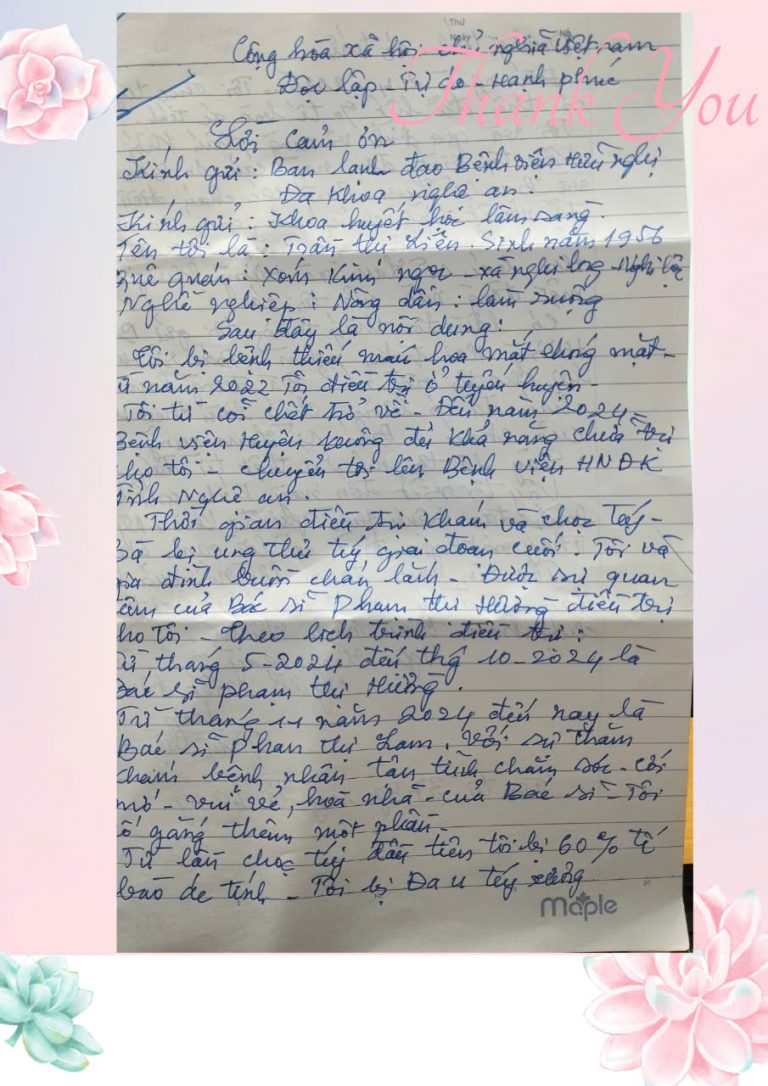 Thứ
Ngày
No
Cộng hòa xã hội nghĩa Việt nam
Độc lập - Tự do - Hạnh phúc
Thank You
Lời cảm ơn
Kính gửi : Ban lanh đạo Bệnh viện Hữu nghị
Đa Khoa nghê an
Kính gửi : Khoa huyết học lâm sang.
Tên tôi là : Trần thị Liễn. Sinh năm 1956
quê quán : Xóm Kim ngọc - xã nghi long - Nghi lộc
Nghề nghiệp : Nông dân : làm ruộng
Sau đây là nội dung :
Tôi bị bệnh thiếu máu hoa mắt chóng mặt -
năm 2022 Tôi điều trị ở tuyến huyện -
Tôi từ cõi chết trở về - Đến năm 2024 =
Bệnh viện Huyện không đủ khả năng chữa trị
cho tôi - chuyển tôi lên Bệnh viện HNĐK
tỉnh Nghê an.
Thời gian điều trị Khám và chọc tủy -
bị ung thư tủy giai đoan cuối. Tôi và
gia đình buồn chán lănh - Được sự quan
tâm của Bác sĩ Phạm thị Hường điều trị
cho Tôi - Theo lịch trình điều trị :
từ tháng 5-2024 đến thg 10-2024 là
Bác sĩ phạm thị Hường.
Từ tháng 11 năm 2024 đến nay là
Bác sĩ Phan thị Lam. với sự thăm
khám bệnh nhân tân tình chăm sóc - cởi
mở - vui vẻ, hoà nhã - của Bác sĩ - Tôi
cố gắng thêm một phần -
Từ lần chọc tủy đầu tiên tôi bị 60% tế
bào ác tính - Tôi bị Đa u tủy xương
Maple